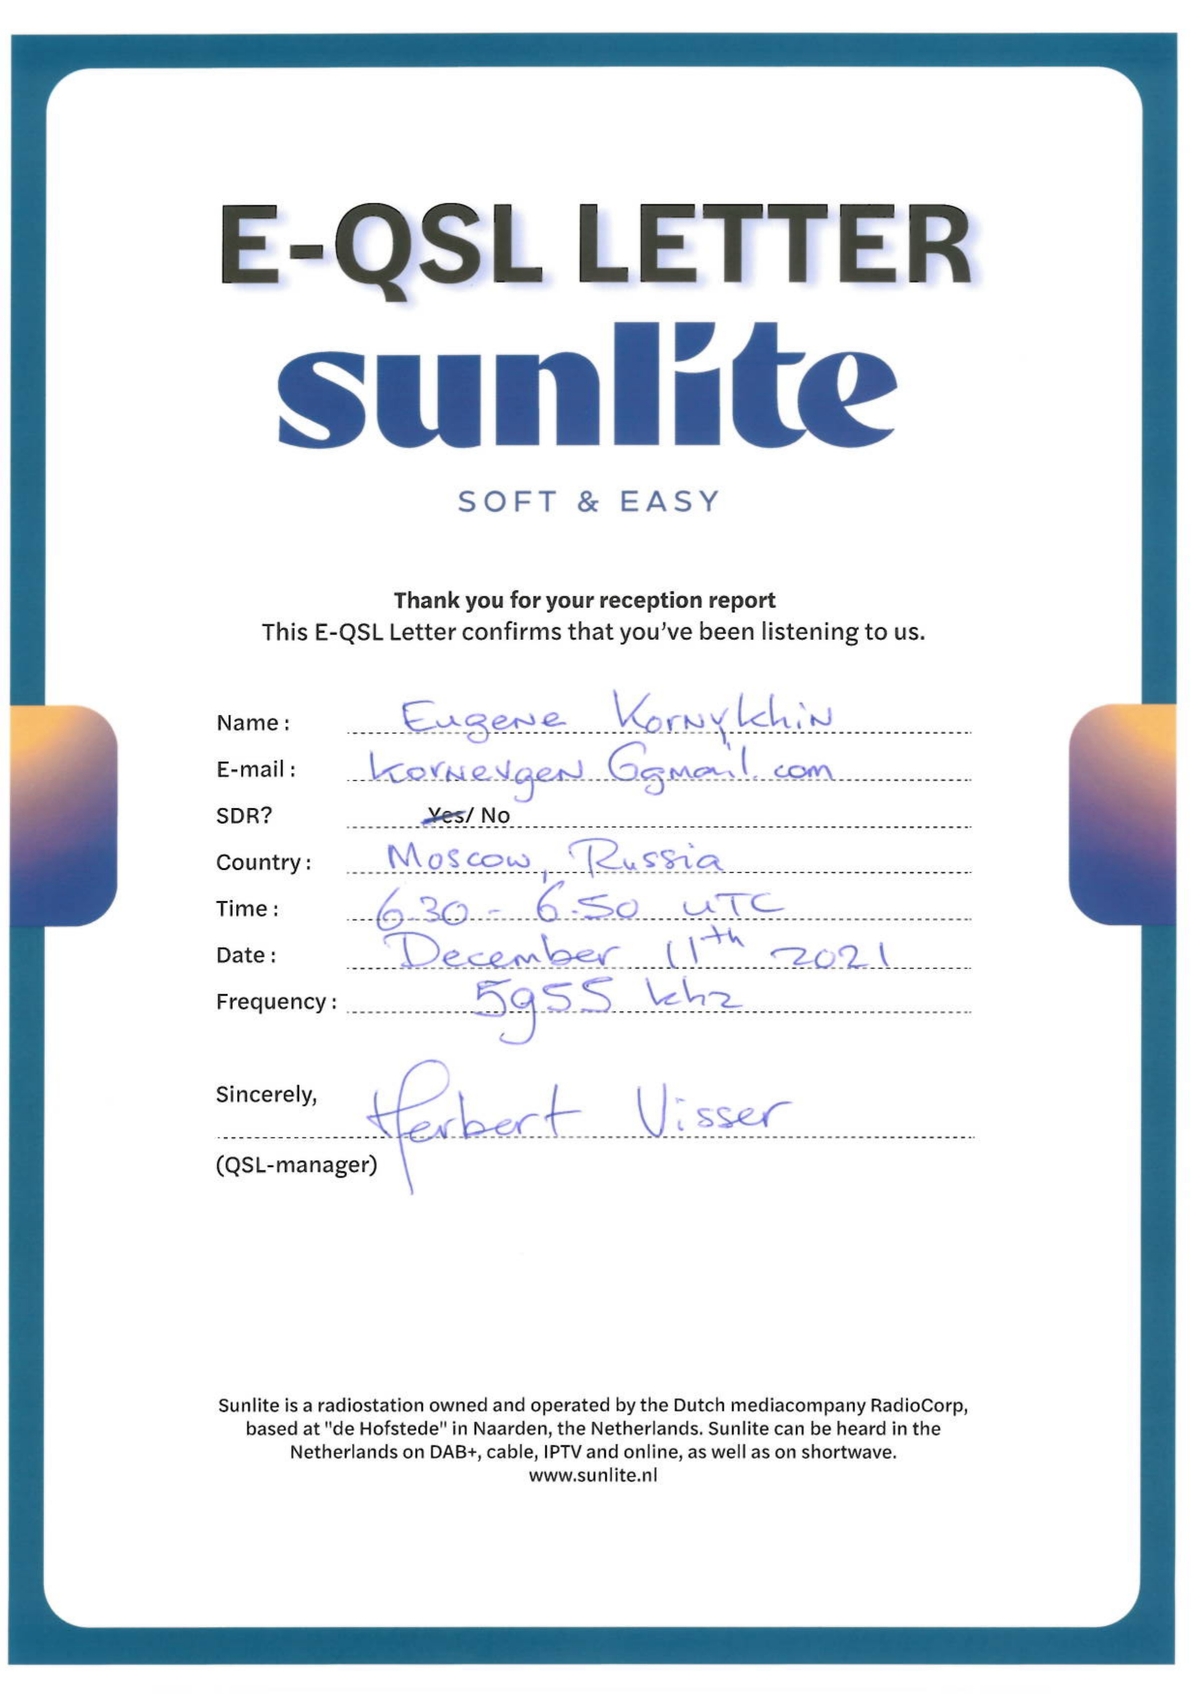 E-QSL LETTER
sunlite
SOFT & EASY
Thank you for your reception report
This E-QSL Letter confirms that you've been listening to us.
Name : Eugene Kornykhin
E-mail : kornevgen @gmail.com
SDR? Yes/ No
Country : Moscow, Russia
Time : 6.30 - 6.50 UTC
Date : December 11th 2021
Frequency : 5955 khz
Sincerely, Herbert Visser
(QSL-manager)
Sunlite is a radiostation owned and operated by the Dutch mediacompany RadioCorp,
based at "de Hofstede" in Naarden, the Netherlands. Sunlite can be heard in the
Netherlands on DAB+, cable, IPTV and online, as well as on shortwave.
www.sunlite.nl